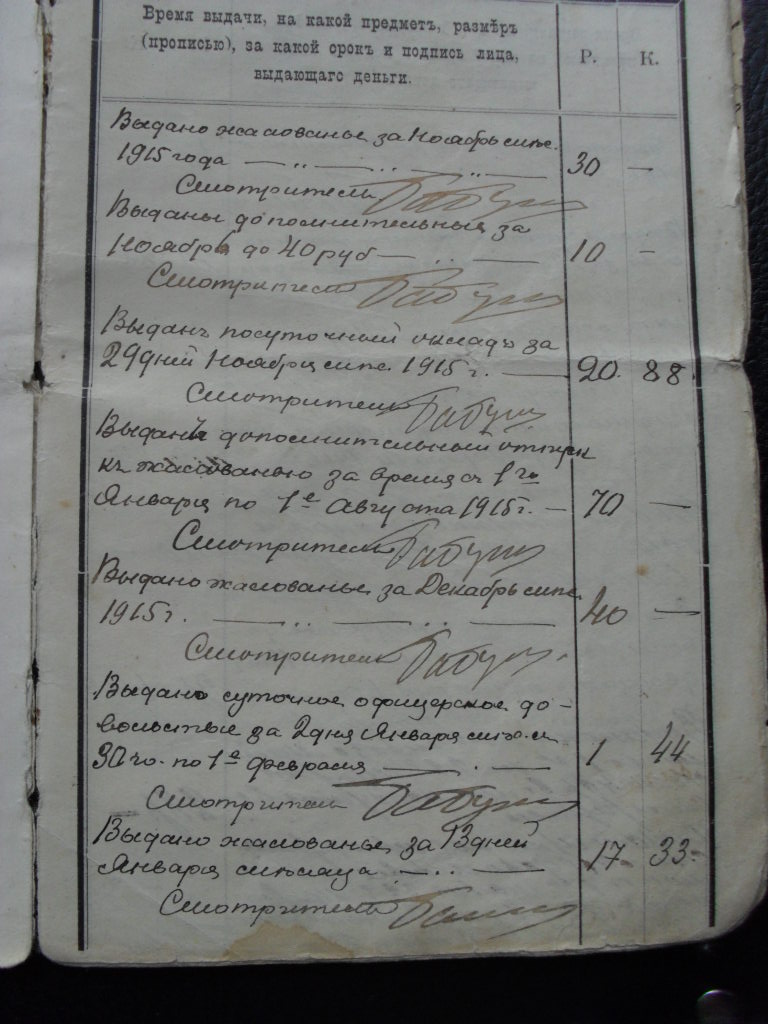 Время выдачи, на какой предметъ, размѣръ
(прописью), за какой срокъ и подпись лица,
выдающаго деньги.
Р.
К.
Выдано жалованье за Ноябрь
1915 года — „ — „ — „ — 30 —
Смотритель
Выданы дополнительныя за
Ноябрь до 40 руб — „ — 10 —
Смотритель
Выданъ посуточный окладъ за
29 дней Ноября 1915 г. — 20. 88.
Смотритель
Выданъ дополнительный отпускъ
къ жалованью за время съ 1го
Января по 1е Августа 1915 г. — 70 —
Смотритель
Выдано жалованье за Декабрь
1915 г. — „ — „ — 40 —
Смотритель
Выдано суточное офицерское до-
вольствие за 2 дня Января
30 го. по 1е февраля — . — 1 44
Смотритель
Выдано жалованье за 13 дней
Января месяца — „ — 17 33
Смотритель